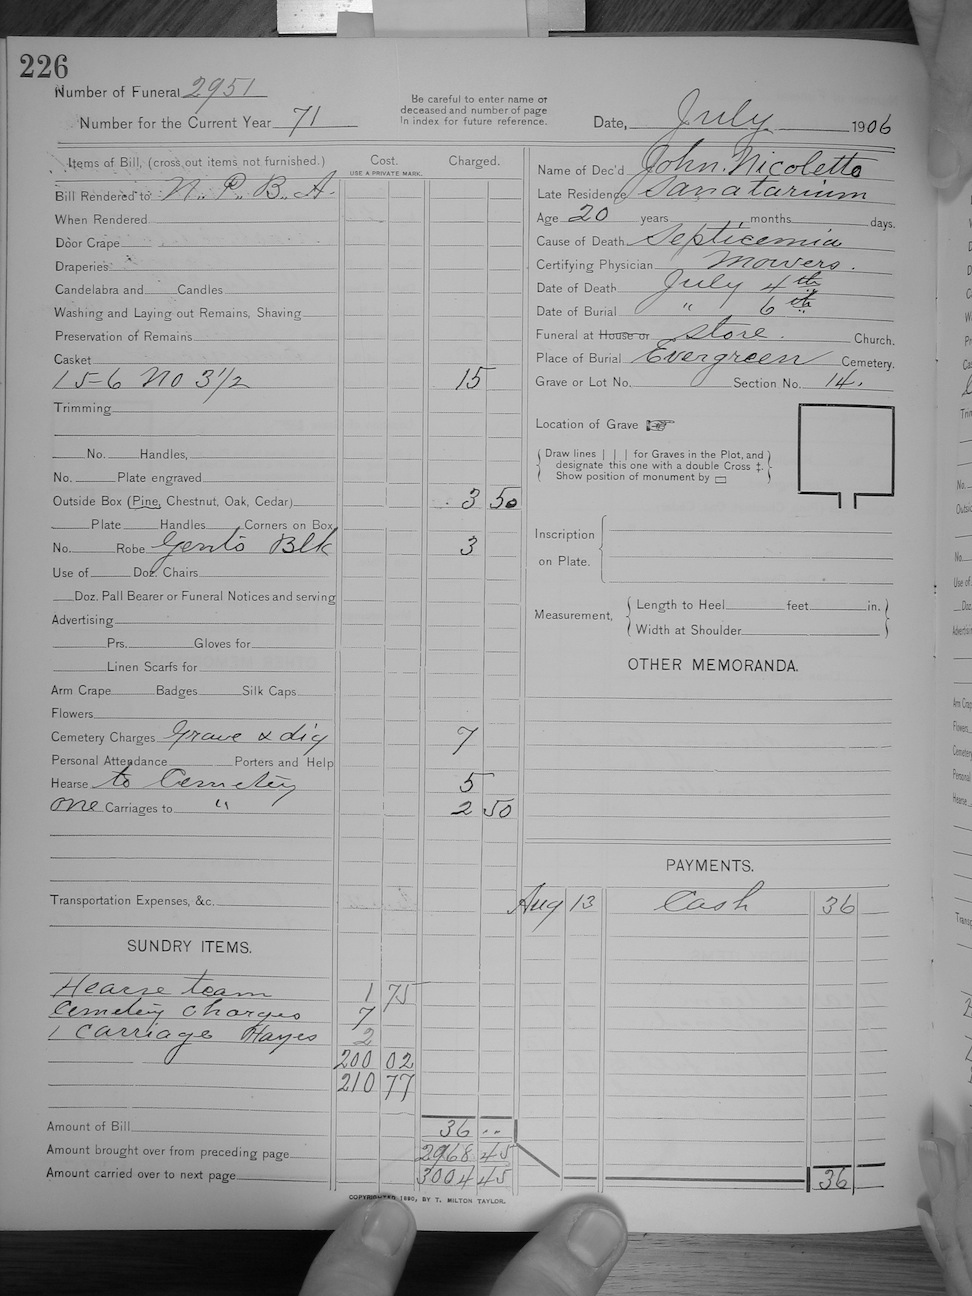 226
Number of Funeral 2951
Number for the Current Year 71
Be careful to enter name or
deceased and number of page
in index for future reference.
Date, July 1906
Items of Bill, (cross out items not furnished.) Cost. Charged.
USE A PRIVATE MARK.
Bill Rendered to N. P. B. A.
When Rendered
Door Crape
Draperies
Candelabra and Candles
Washing and Laying out Remains, Shaving
Preservation of Remains
Casket
15-6 No 3 1/2 15
Trimming
No. Handles,
No. Plate engraved
Outside Box (Pine, Chestnut, Oak, Cedar) 3 50
Plate Handles Corners on Box
No. Robe Gents Blk 3
Use of Doz. Chairs
Doz. Pall Bearer or Funeral Notices and serving
Advertising
Prs. Gloves for
Linen Scarfs for
Arm Crape Badges Silk Caps
Flowers
Cemetery Charges Grave & dig 7
Personal Attendance Porters and Help
Hearse to Cemetery 5
one Carriages to " 2 50
Transportation Expenses, &c.
SUNDRY ITEMS.
Hearse team 1 75
Cemetery Charges 7
1 Carriage Hayes 2
200 02
210 77
Amount of Bill 36 ..
Amount brought over from preceding page 2968 45
Amount carried over to next page 3004 45
COPYRIGHTED 1890, BY T. MILTON TAYLOR.
Name of Dec'd John Nicoletto
Late Residence Sanatarium
Age 20 years months days.
Cause of Death Septicemia
Certifying Physician Mowers.
Date of Death July 4th
Date of Burial " 6th
Funeral at House or store. Church.
Place of Burial Evergreen Cemetery.
Grave or Lot No. Section No. 14.
Location of Grave
Draw lines | | | for Graves in the Plot, and
designate this one with a double Cross ‡.
Show position of monument by ▭
Inscription
on Plate.
Measurement,
Length to Heel feet in.
Width at Shoulder
OTHER MEMORANDA.
PAYMENTS.
Aug 13 Cash 36
36